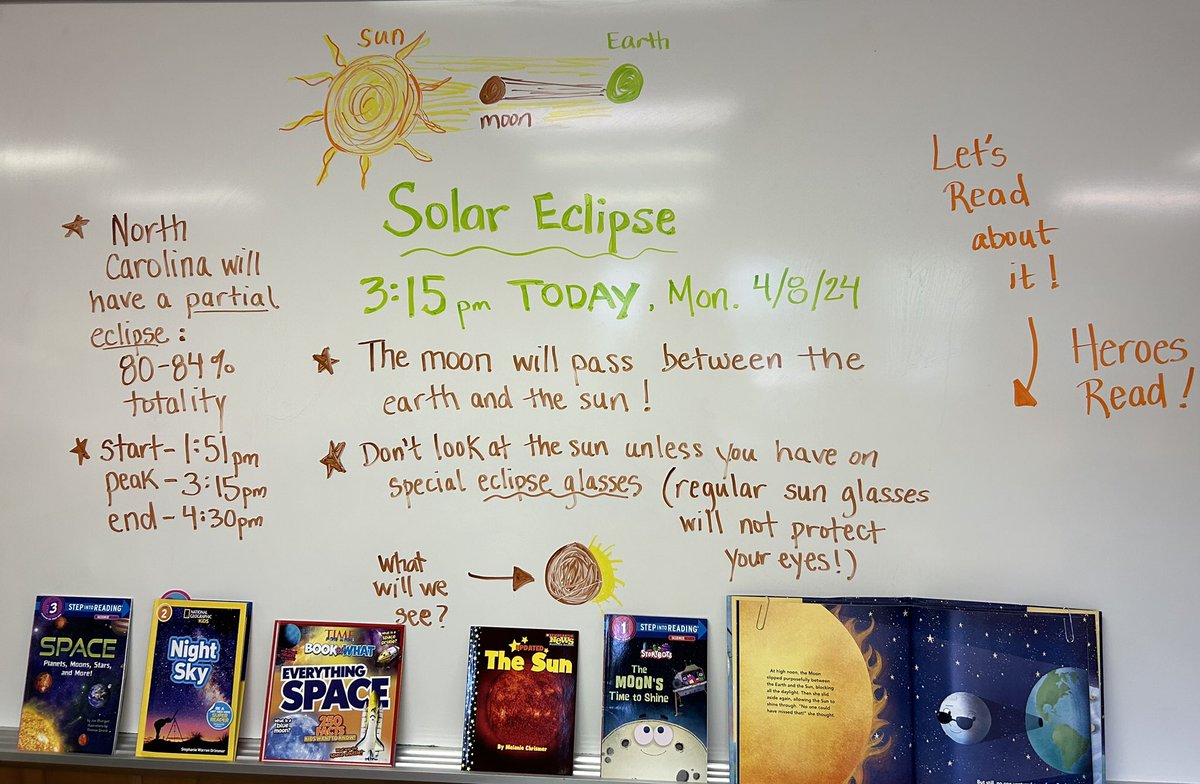 sun
Earth
moon
Solar Eclipse
3:15 pm TODAY, Mon. 4/8/24
North
Carolina will
have a partial
eclipse:
80-84%
totality
start - 1:51pm
peak - 3:15pm
end - 4:30pm
The moon will pass between the
earth and the sun!
Don't look at the sun unless you have on
special eclipse glasses (regular sun glasses
will not protect
your eyes!)
what
will we
see?
Let's
Read
about
it!
Heroes
Read!
3 STEP INTO READING
SCIENCE
SPACE
Planets, Moons, Stars,
and More!
2 NATIONAL GEOGRAPHIC
KIDS
Night
Sky
Stephanie Warren Drimmer
TIME
BOOK OF WHAT
EVERYTHING
SPACE
250
FACTS
KIDS WANT TO KNOW!
SCHOLASTIC
NEWS
UPDATED
The Sun
By Melanie Chrismer
1 STEP INTO READING
SCIENCE
STORYBOTS
The
MOON'S
Time to Shine
At high noon, the Moon
slipped purposefully between
the Earth and the Sun, blocking
all the daylight. Then she slid
aside again, allowing the Sun to
shine through. "No one could
have missed that!" she thought.